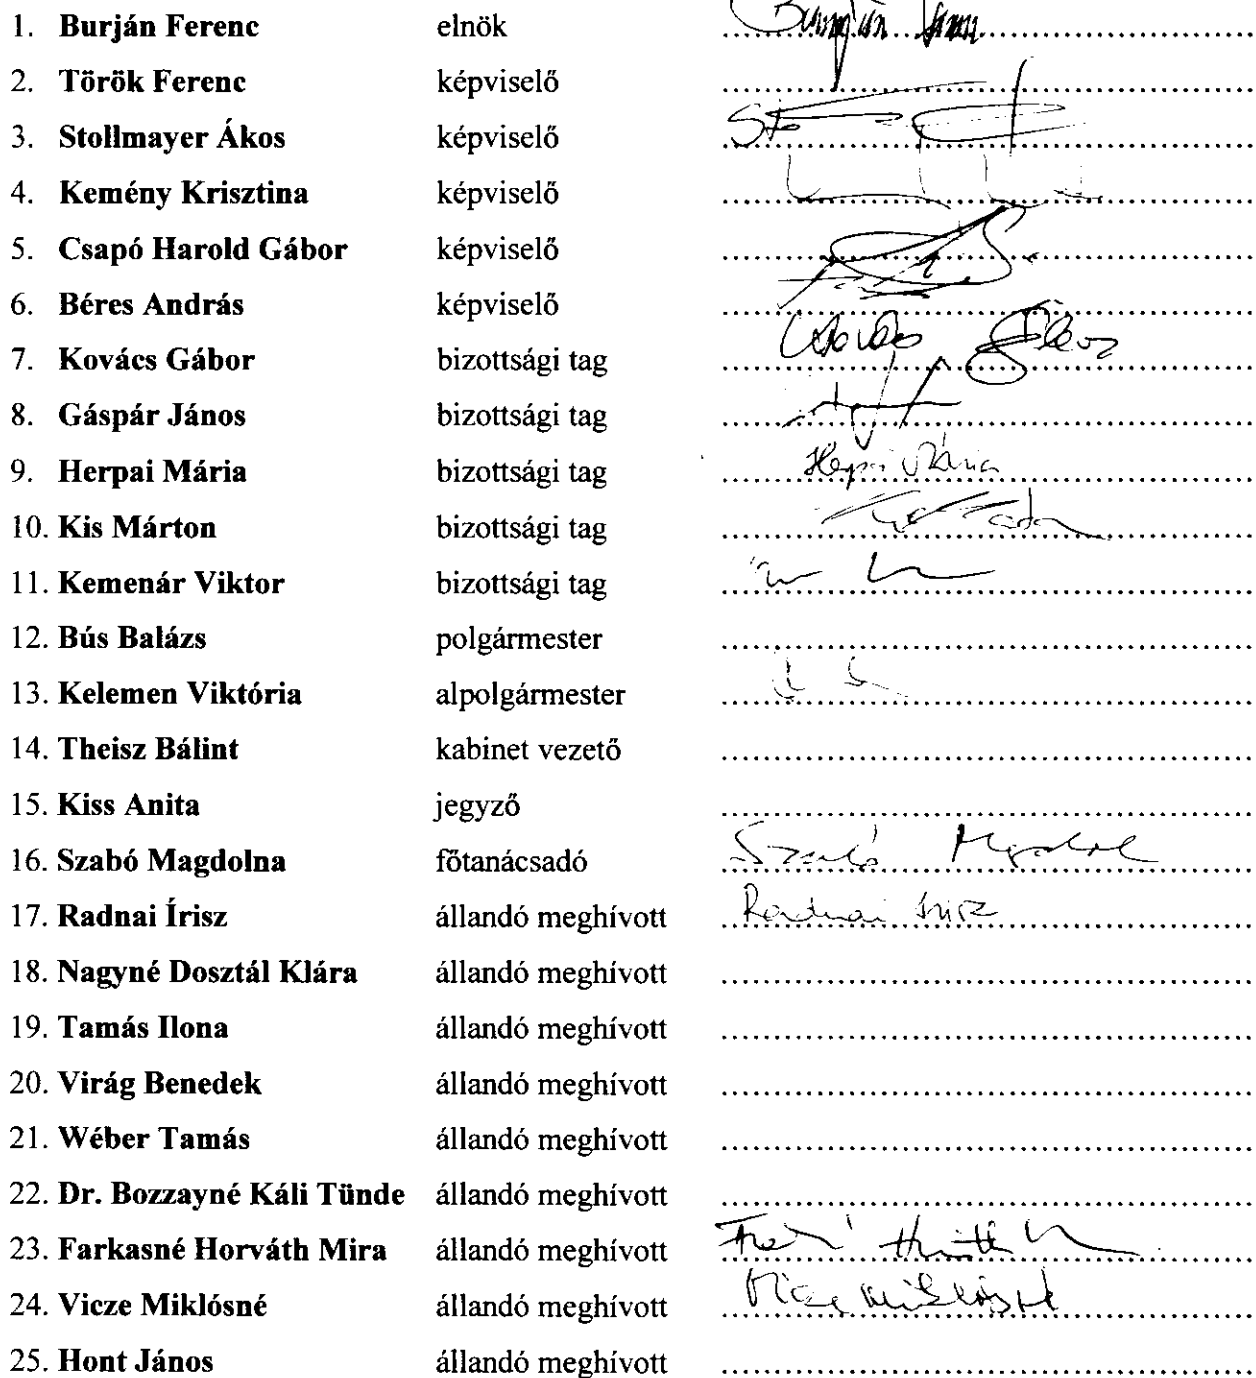 1. Burján Ferenc elnök Burján
2. Török Ferenc képviselő
3. Stollmayer Ákos képviselő
4. Kemény Krisztina képviselő
5. Csapó Harold Gábor képviselő
6. Béres András képviselő
7. Kovács Gábor bizottsági tag
8. Gáspár János bizottsági tag
9. Herpai Mária bizottsági tag Herpai Mária
10. Kis Márton bizottsági tag
11. Kemenár Viktor bizottsági tag
12. Bús Balázs polgármester
13. Kelemen Viktória alpolgármester
14. Theisz Bálint kabinet vezető
15. Kiss Anita jegyző
16. Szabó Magdolna főtanácsadó Szabó
17. Radnai Írisz állandó meghívott Radnai Írisz
18. Nagyné Dosztál Klára állandó meghívott
19. Tamás Ilona állandó meghívott
20. Virág Benedek állandó meghívott
21. Wéber Tamás állandó meghívott
22. Dr. Bozzayné Káli Tünde állandó meghívott
23. Farkasné Horváth Mira állandó meghívott
24. Vicze Miklósné állandó meghívott Miklósné
25. Hont János állandó meghívott